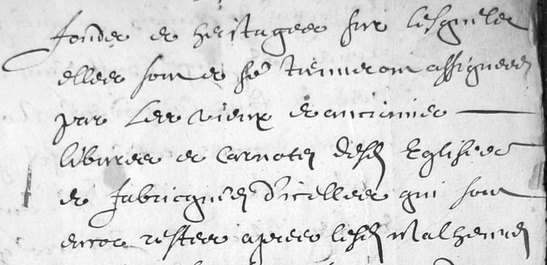 fondes et heritages sur lesquelles
elles sont et se trenneront assignees
par les vieux et anciennes
libvres et carnotz desd Eglises
et fabricques d'icelles qui sont
encor restees apres lesd malheures